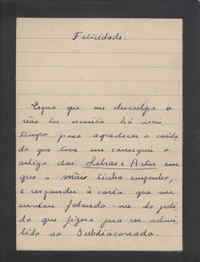 Felicidade.
Espero que me desculpe o
não ter escrito há mais
tempo para agradecer o cartão
do que teve em conseguir o
artigo das Letras e Artes em
que a mãe tinha
e responder à carta que me
mandou falando-me do pedi-
do que fizera para ser admi-
tido ao Subdiaconado.